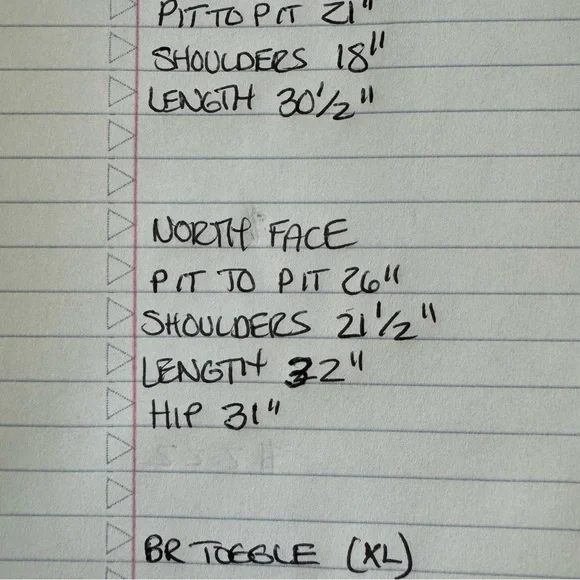 PIT TO PIT 21"
SHOULDERS 18"
LENGTH 30 1/2"
NORTH FACE
PIT TO PIT 26"
SHOULDERS 21 1/2"
LENGTH 32"
HIP 31"
BR TOGGLE (XL)